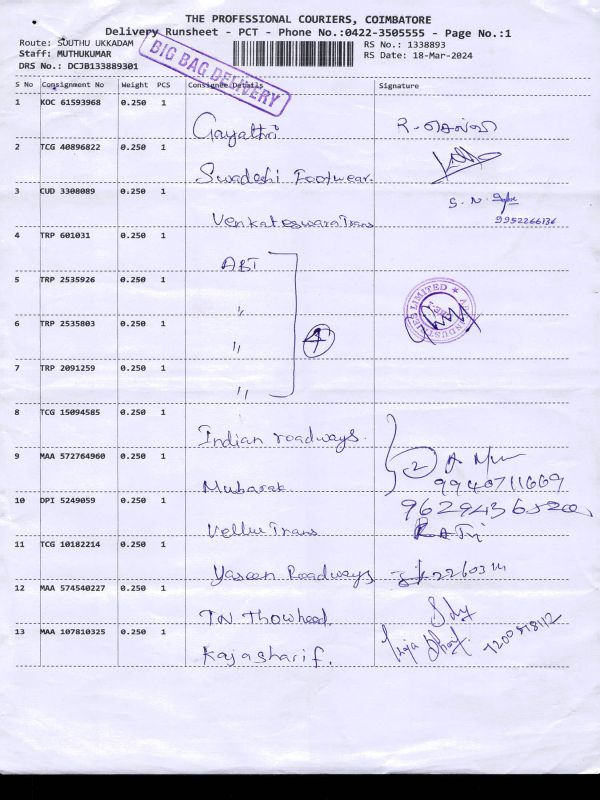 THE PROFESSIONAL COURIERS, COIMBATORE
Delivery Runsheet - PCT - Phone No.:0422-3505555 - Page No.:1
Route: SOUTHU UKKADAM
RS No.: 1338893
Staff: MUTHUKUMAR
RS Date: 18-Mar-2024
DRS No.: DCJB133889301
BIG BAG DELIVERY
S No Consignment No Weight PCS Consignee Details Signature
1 KOC 61593968 0.250 1
Gayathri
2 TCG 40896822 0.250 1
Swadeshi Footwear.
3 CUD 3308089 0.250 1
S. N.
Venkateswara Trans
9952266136
4 TRP 601031 0.250 1
ABT
5 TRP 2535926 0.250 1
"
LIMITED
6 TRP 2535803 0.250 1
4
"
7 TRP 2091259 0.250 1
"
8 TCG 15094585 0.250 1
Indian roadways.
9 MAA 572764960 0.250 1
2
9940711669
Mubarak
10 DPI 5249059 0.250 1
Vellur Trans
11 TCG 10182214 0.250 1
Yaseen Roadways
12 MAA 574540227 0.250 1
TN Thowheed
13 MAA 107810325 0.250 1
Kajasharif.